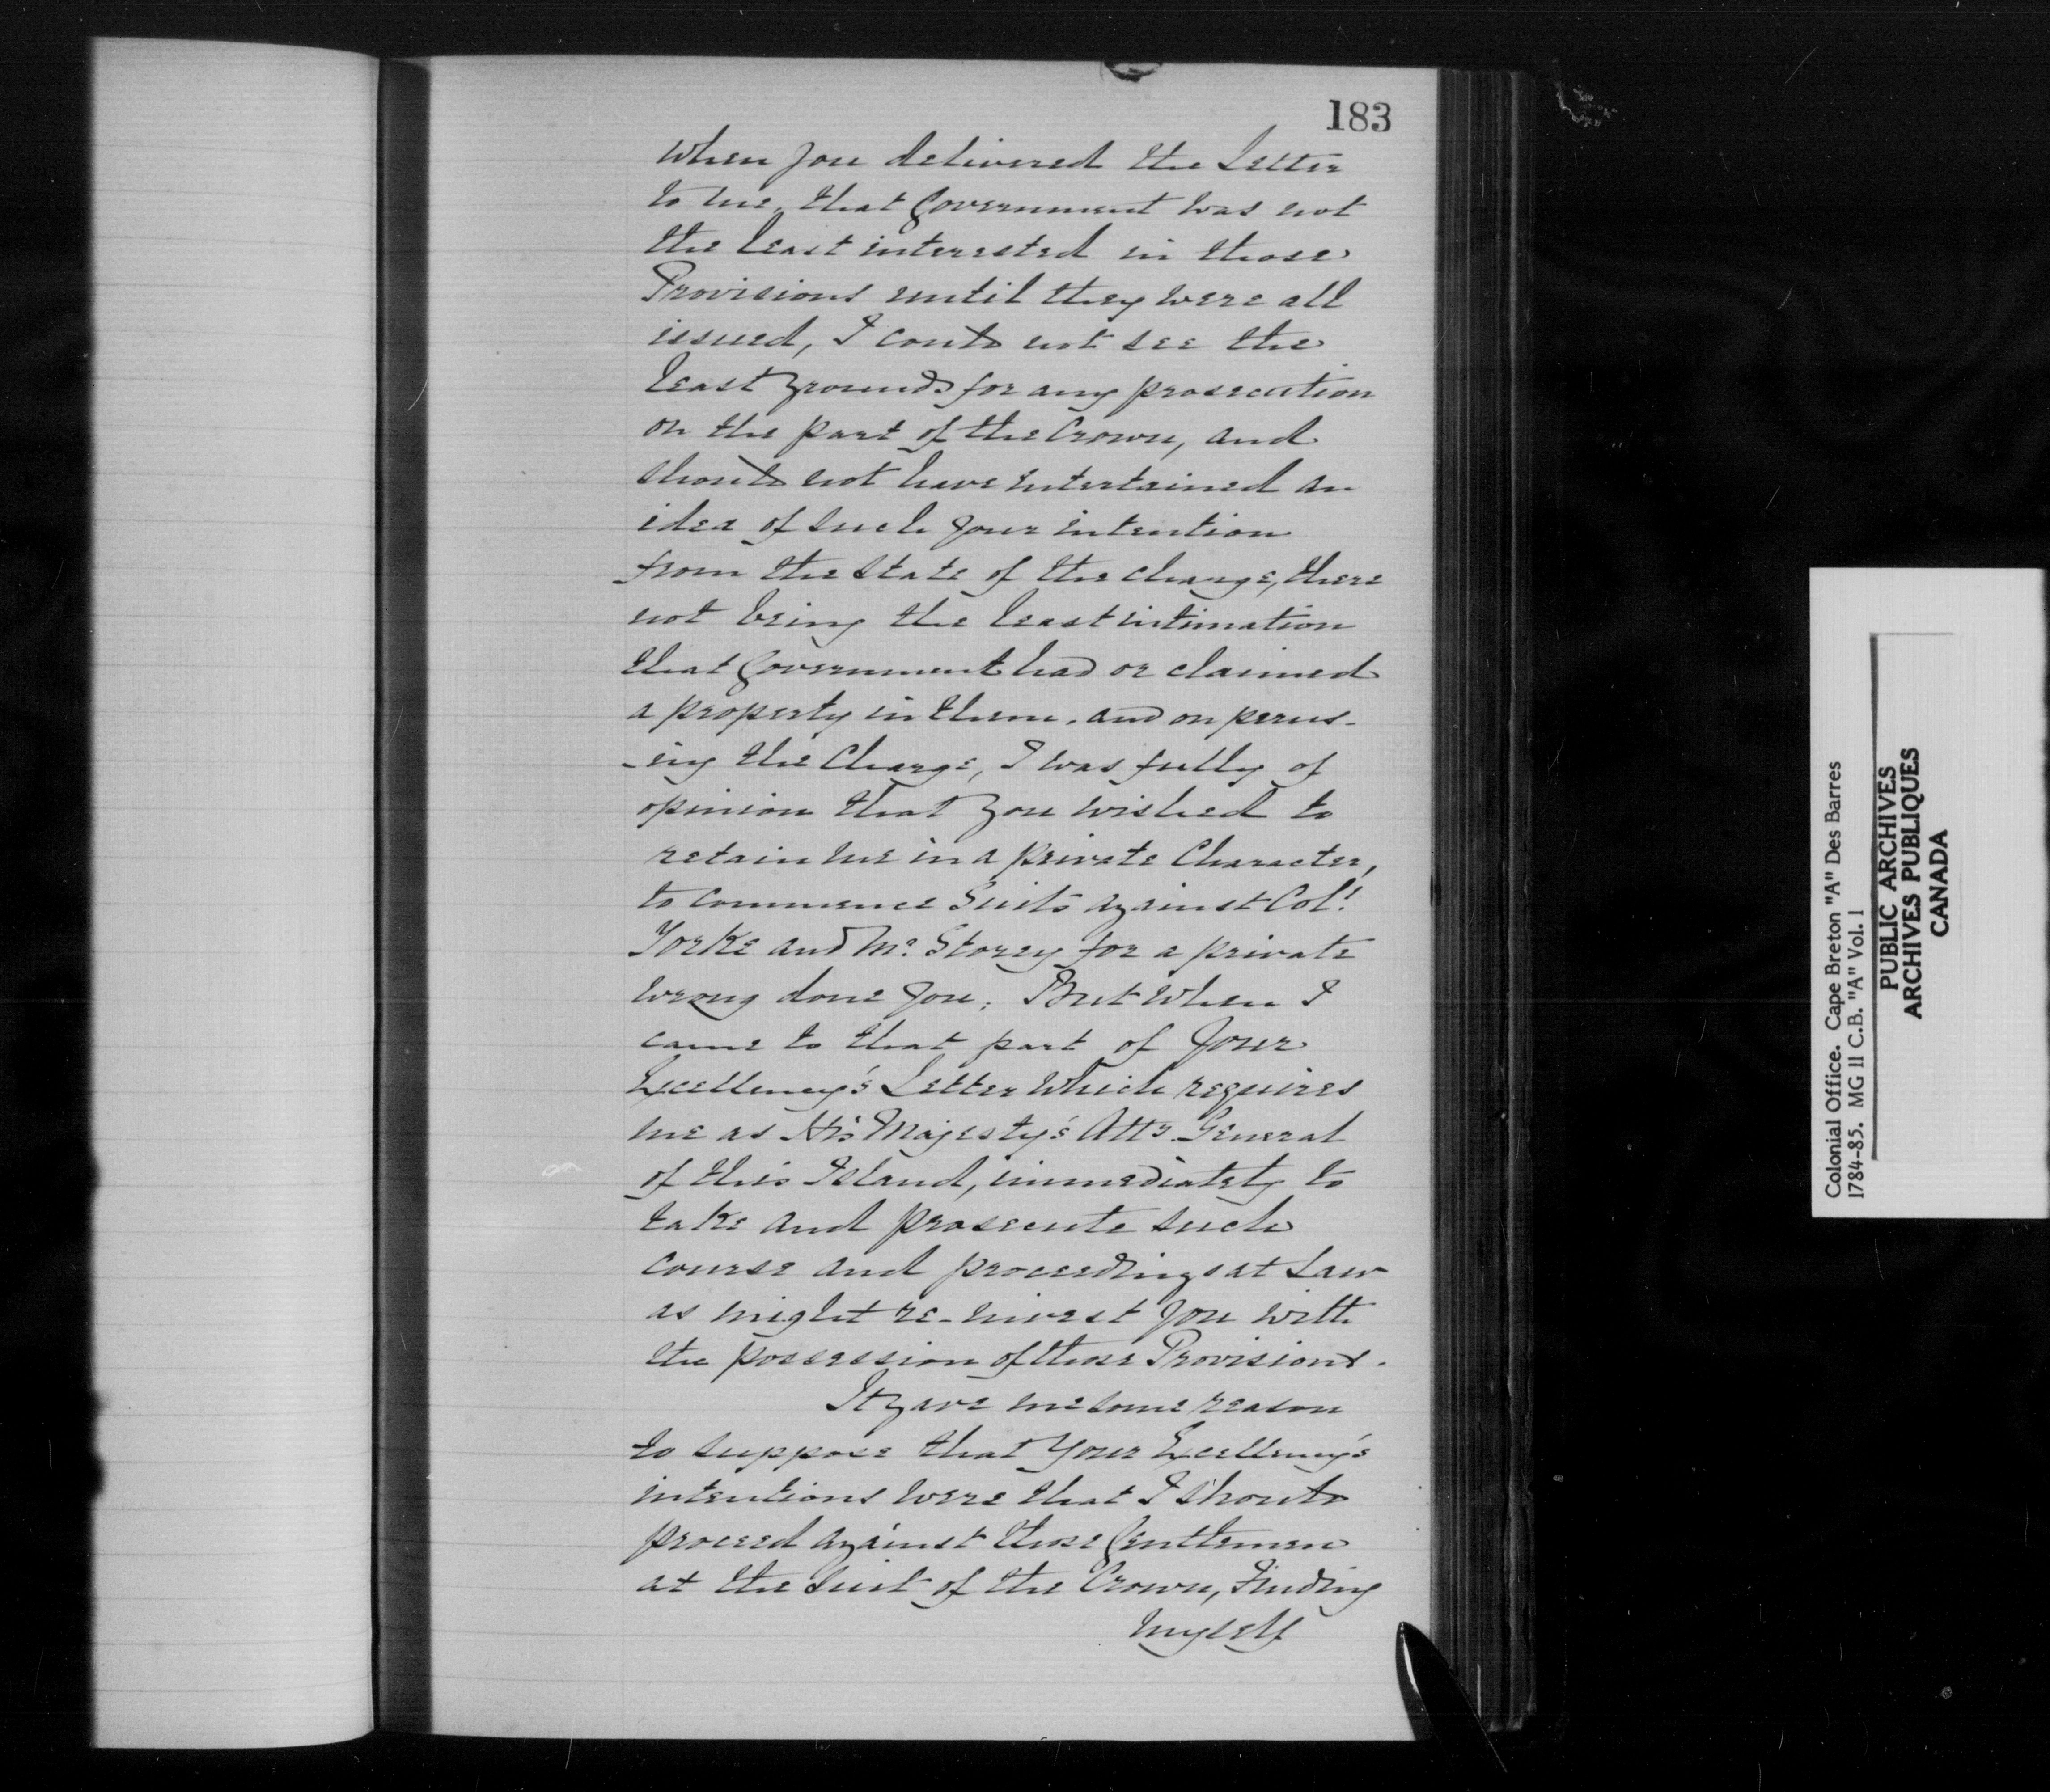 183
when you delivered the Letter
to me, that Government was not
the least interested in those
Provisions until they were all
issued, I could not see the
least grounds for any prosecution
on the part of the Crown, and
should not have entertained an
idea of such your intention
from the state of the charge, there
not being the least intimation
that Government had or claimed
a property in them. and on perus-
-ing the Charge, I was fully of
opinion that you wished to
retain me in a private Character,
to commence Suits against Col!
Yorke and Mr. Storey for a private
wrong done you; But when I
came to that part of Your
Excellency's Letter which requires
me as His Majesty's Atty General
of this Island, immediately to
take and prosecute such
course and proceedings at Law
as might re-invest you with
the possession of those Provisions.
It gave me some reason
to suppose that Your Excellency's
intentions were that I should
proceed against those Gentlemen
at the Suit of the Crown, Finding
myself
Colonial Office. Cape Breton "A" Des Barres
1784-85. MG 11 C.B. "A" Vol. 1
PUBLIC ARCHIVES
ARCHIVES PUBLIQUES
CANADA